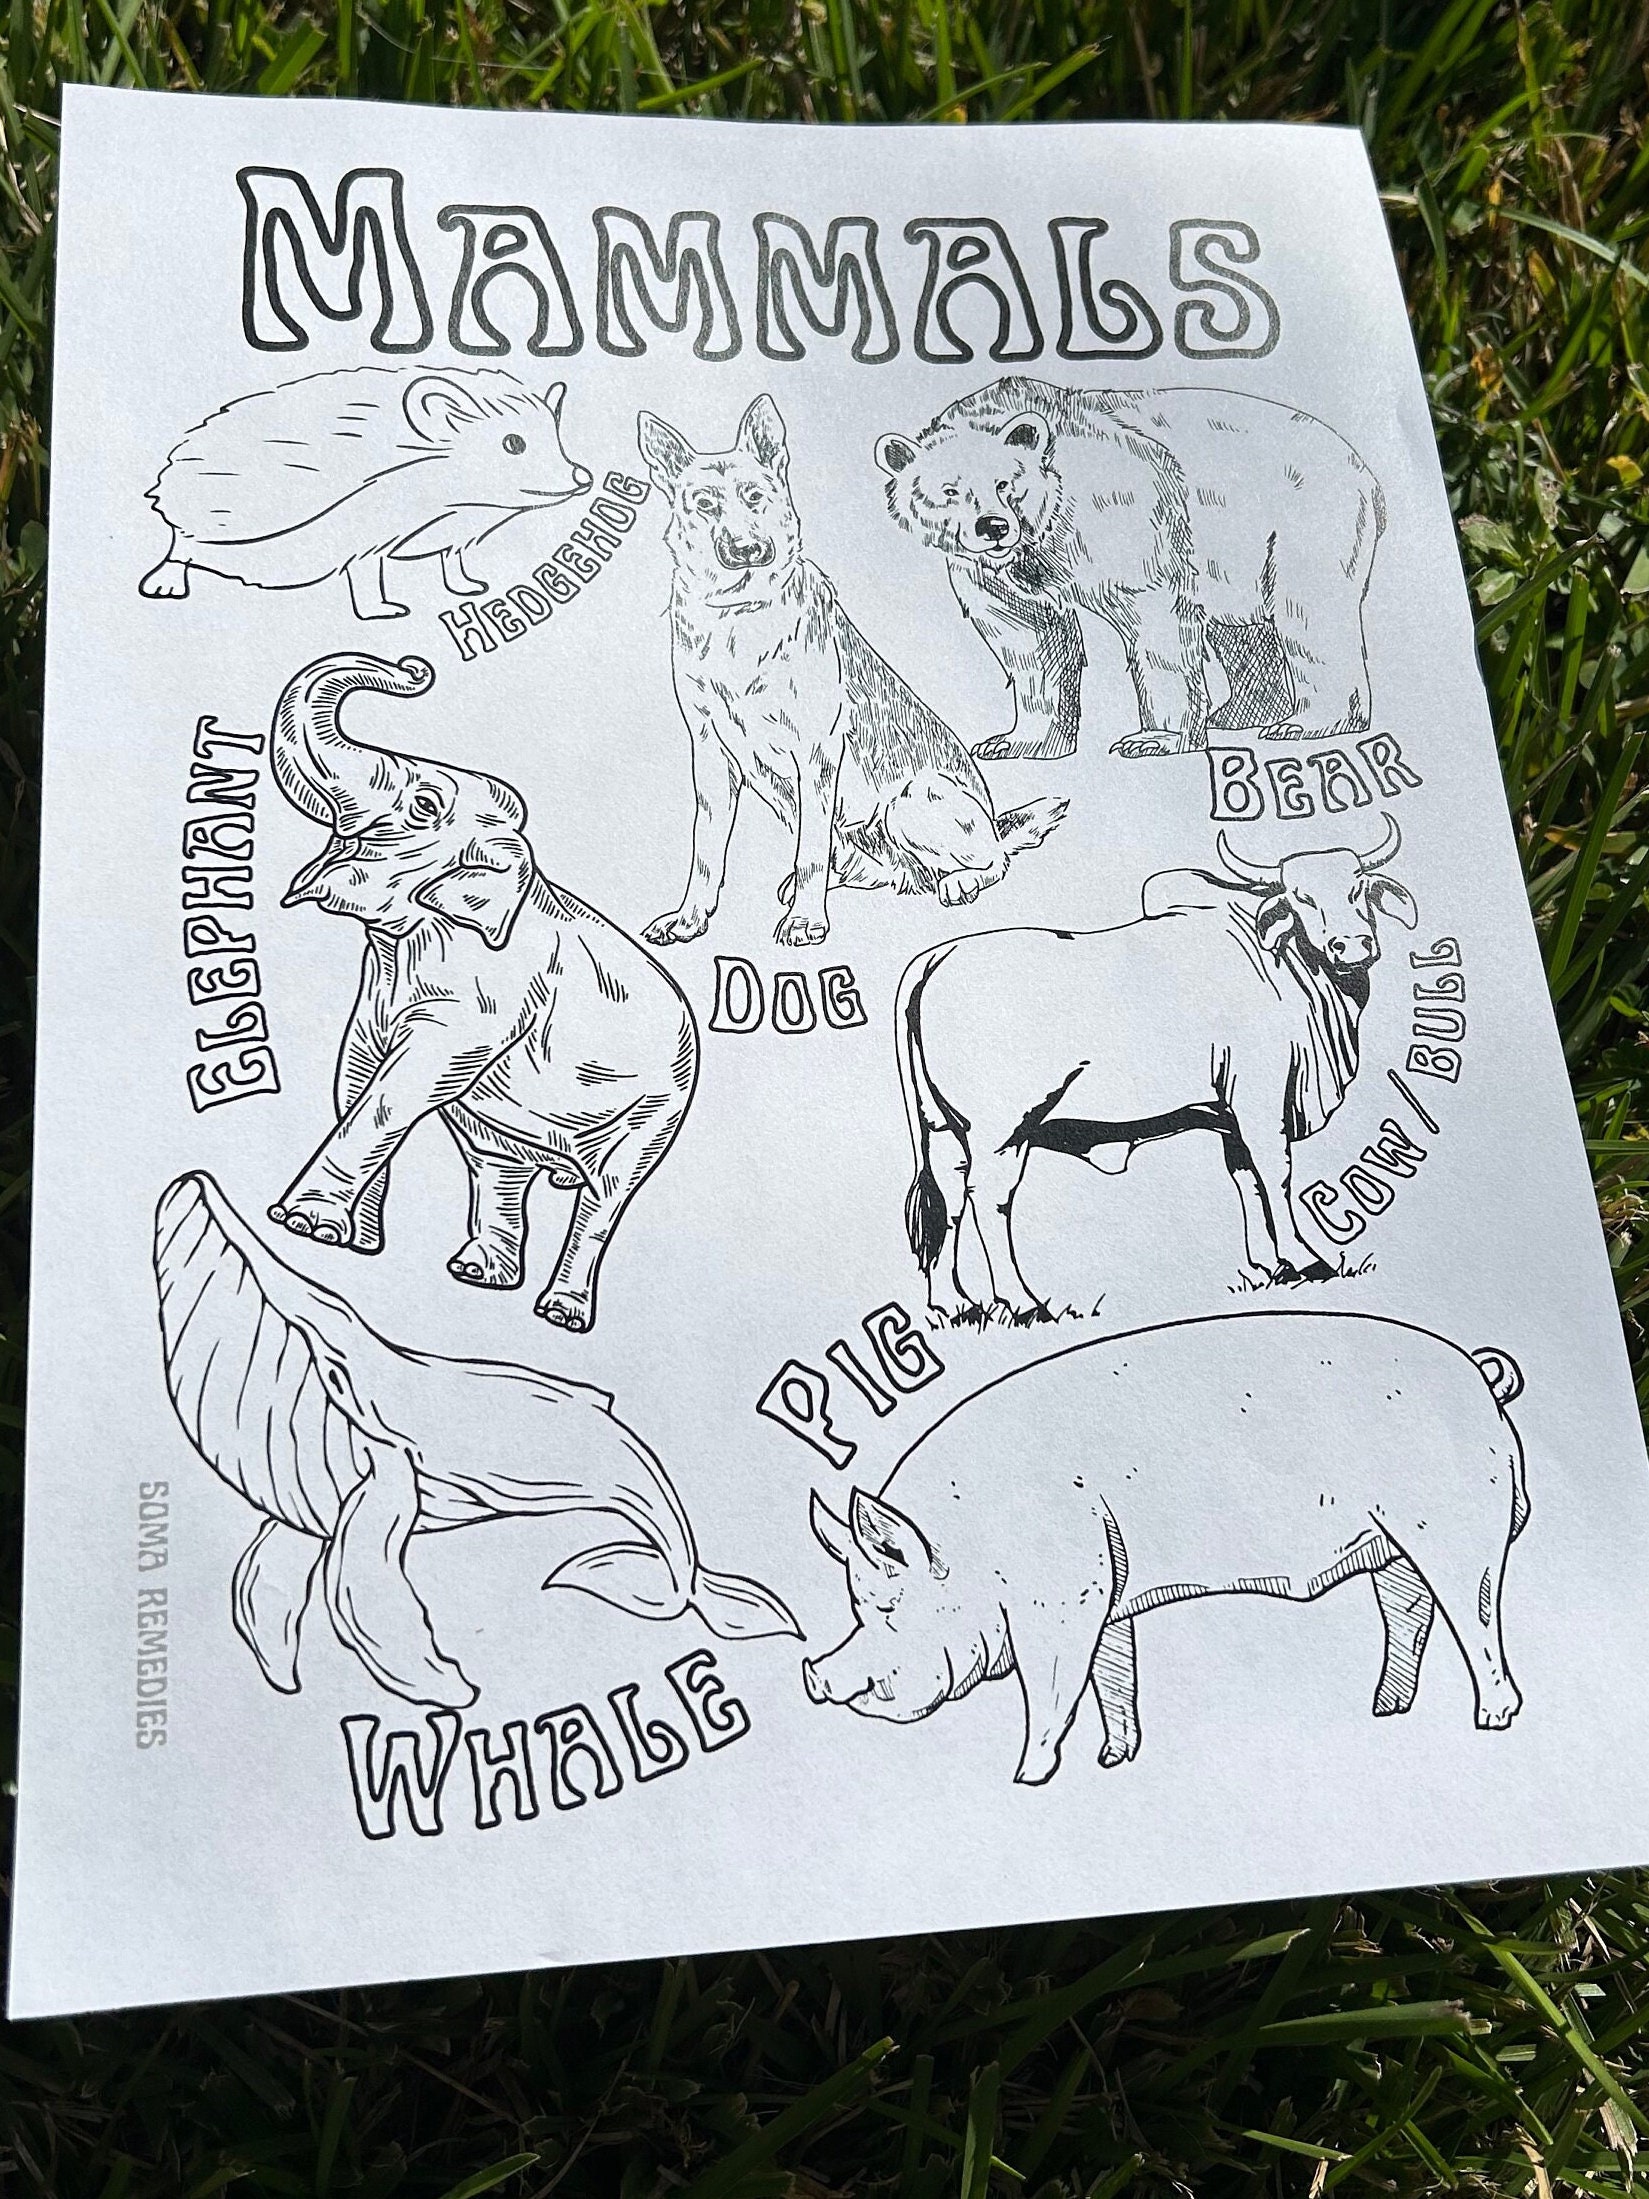 MAMMALS
HEDGEHOG
BEAR
ELEPHANT
DOG
COW / BULL
PIG
SOMA REMEDIES
WHALE